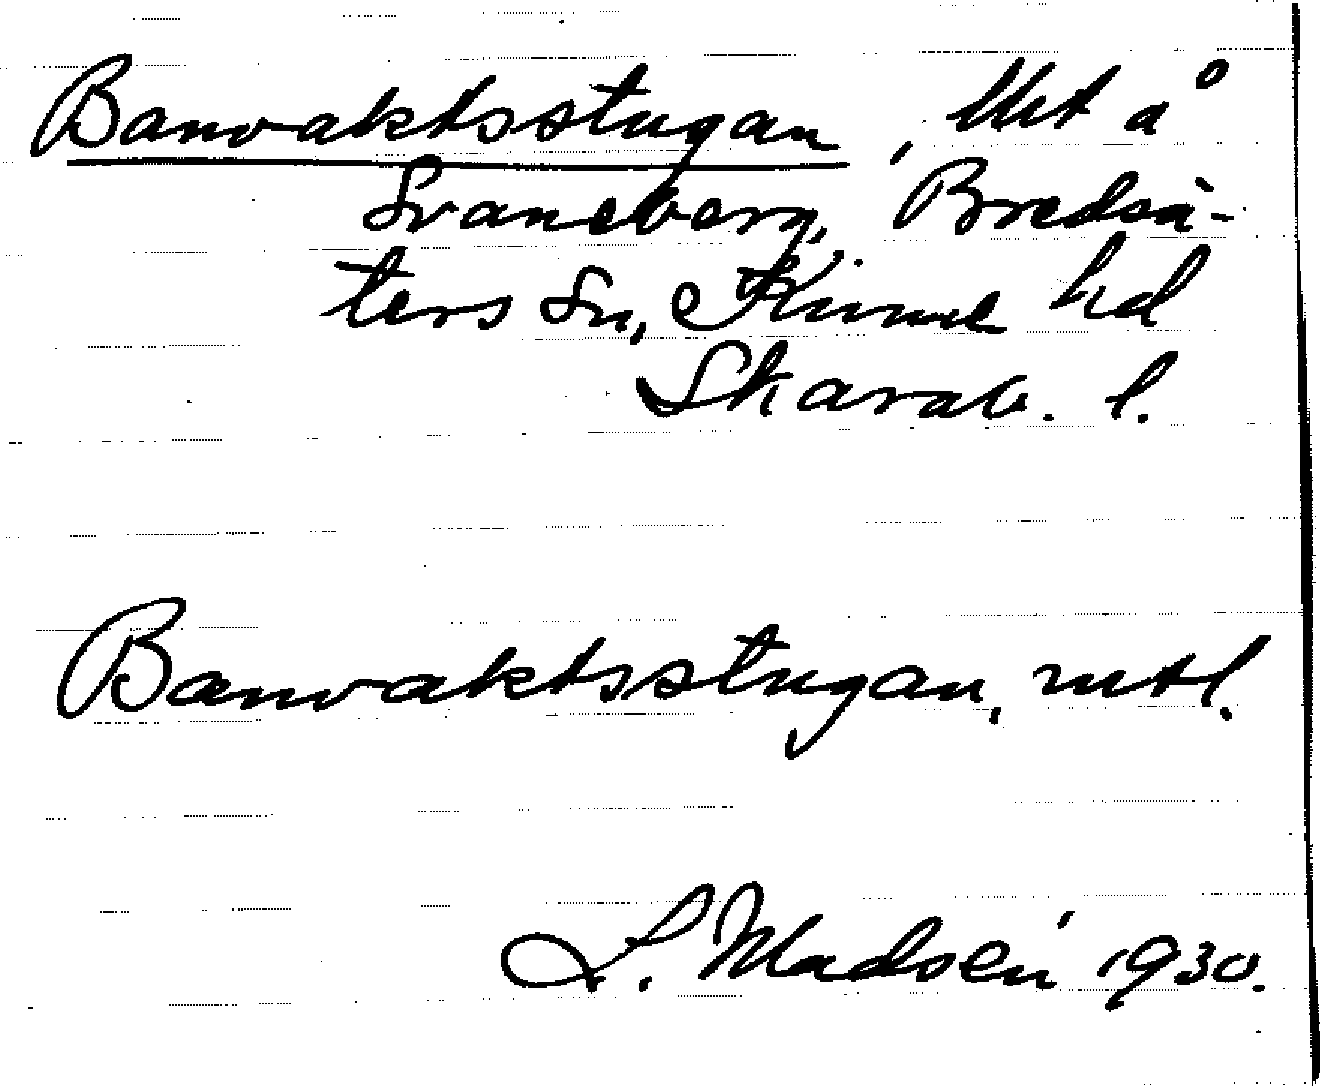 Banvaktsstugan, lht å
Svaneberg, Bredsä-
ters sn, Kinne hd
Skarab. l.
Banvaktsstugan, mtl.
L. Madsén 1930.